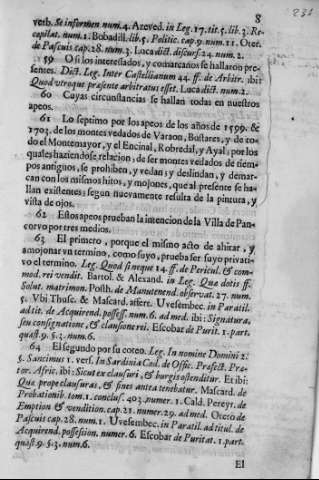 8
231
verb. Se informen num.4. Azeved. in Leg. 17. tit. 5. lib. 3. Re-
copilat. num. 1. Bobadill. lib. 5. Politic. cap. 9. num. 11. Oter.
de Pascuis cap. 28. num. 3. Luca dict. discurs. 24. num. 2.
59 O si los interessados, y comarcanos se hallaron pre-
sentes. Dict. Leg. Inter Castellianum 44. ff. de Arbitr. ibi:
Quod utroque præsente arbitratus esset. Luca dict. num. 2.
60 Cuyas circunstancias se hallan todas en nuestros
apeos.
61 Lo septimo por los apeos de los años de 1599. &
1703. de los montes vedados de Varaon, Bustares, y de to-
do el Montemayor, y el Encinal, Robredal, y Ayal; por los
quales haziendose relacion, de ser montes vedados de tiem-
pos antiguos, se prohiben, y vedan; y deslindan, y demar-
can con los mismos hitos, y mojones, que al presente se ha-
llan existentes; segun nuevamente resulta de la pintura, y
vista de ojos.
62 Estos apeos prueban la intencion de la Villa de Pan-
corvo por tres medios.
63 El primero, porque el mismo acto de ahitar, y
amojonar un termino, como suyo, prueba ser suyo privati-
vo el termino. Leg. Quod si neque 14. ff. de Pericul. & com-
mod. rei vendit. Bartol. & Alexand. in Leg. Que dotis ff.
Solut. matrimon. Posth. de Manutenend. observat. 27. num.
5. Vbi Thusc. & Mascard. affert. Uvesembec. in Paratil.
ad tit. de Acquirend. possess. num. 6. ad med. ibi: Signatura,
seu consignatione, & clausione rei. Escobar de Purit. 1. part.
quæst. 9. §. 3. num. 6.
64 El segundo por su coteo. Leg. In nomine Domini 2.
§. Sancimus 1. vers. In Sardinia Cod. de Offic. Præfect. Præ-
tor. Afric. ibi: Sicut ex clausuri, & burgis ostenditur. Et ibi:
Qua prope clausuras, & fines antea tenobatur. Mascard. de
Probationib. tom. 1. conclus. 403. numer. 1. Cald. Pereyr. de
Emption & vendition. cap. 21. numer. 29. ad med. Otero de
Pascuis cap. 28. num. 1. Uvesembec. in Paratil. ad titul. de
Acquirend. possessiion. numer. 6. Escobar de Puritat. 1. part.
quæst. 9. §. 3. num. 6.
El